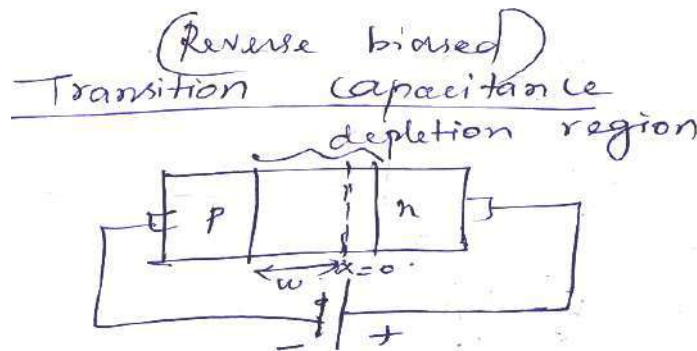 (Reverse biased)
Transition capacitance
depletion region
p n
w x=0
- +